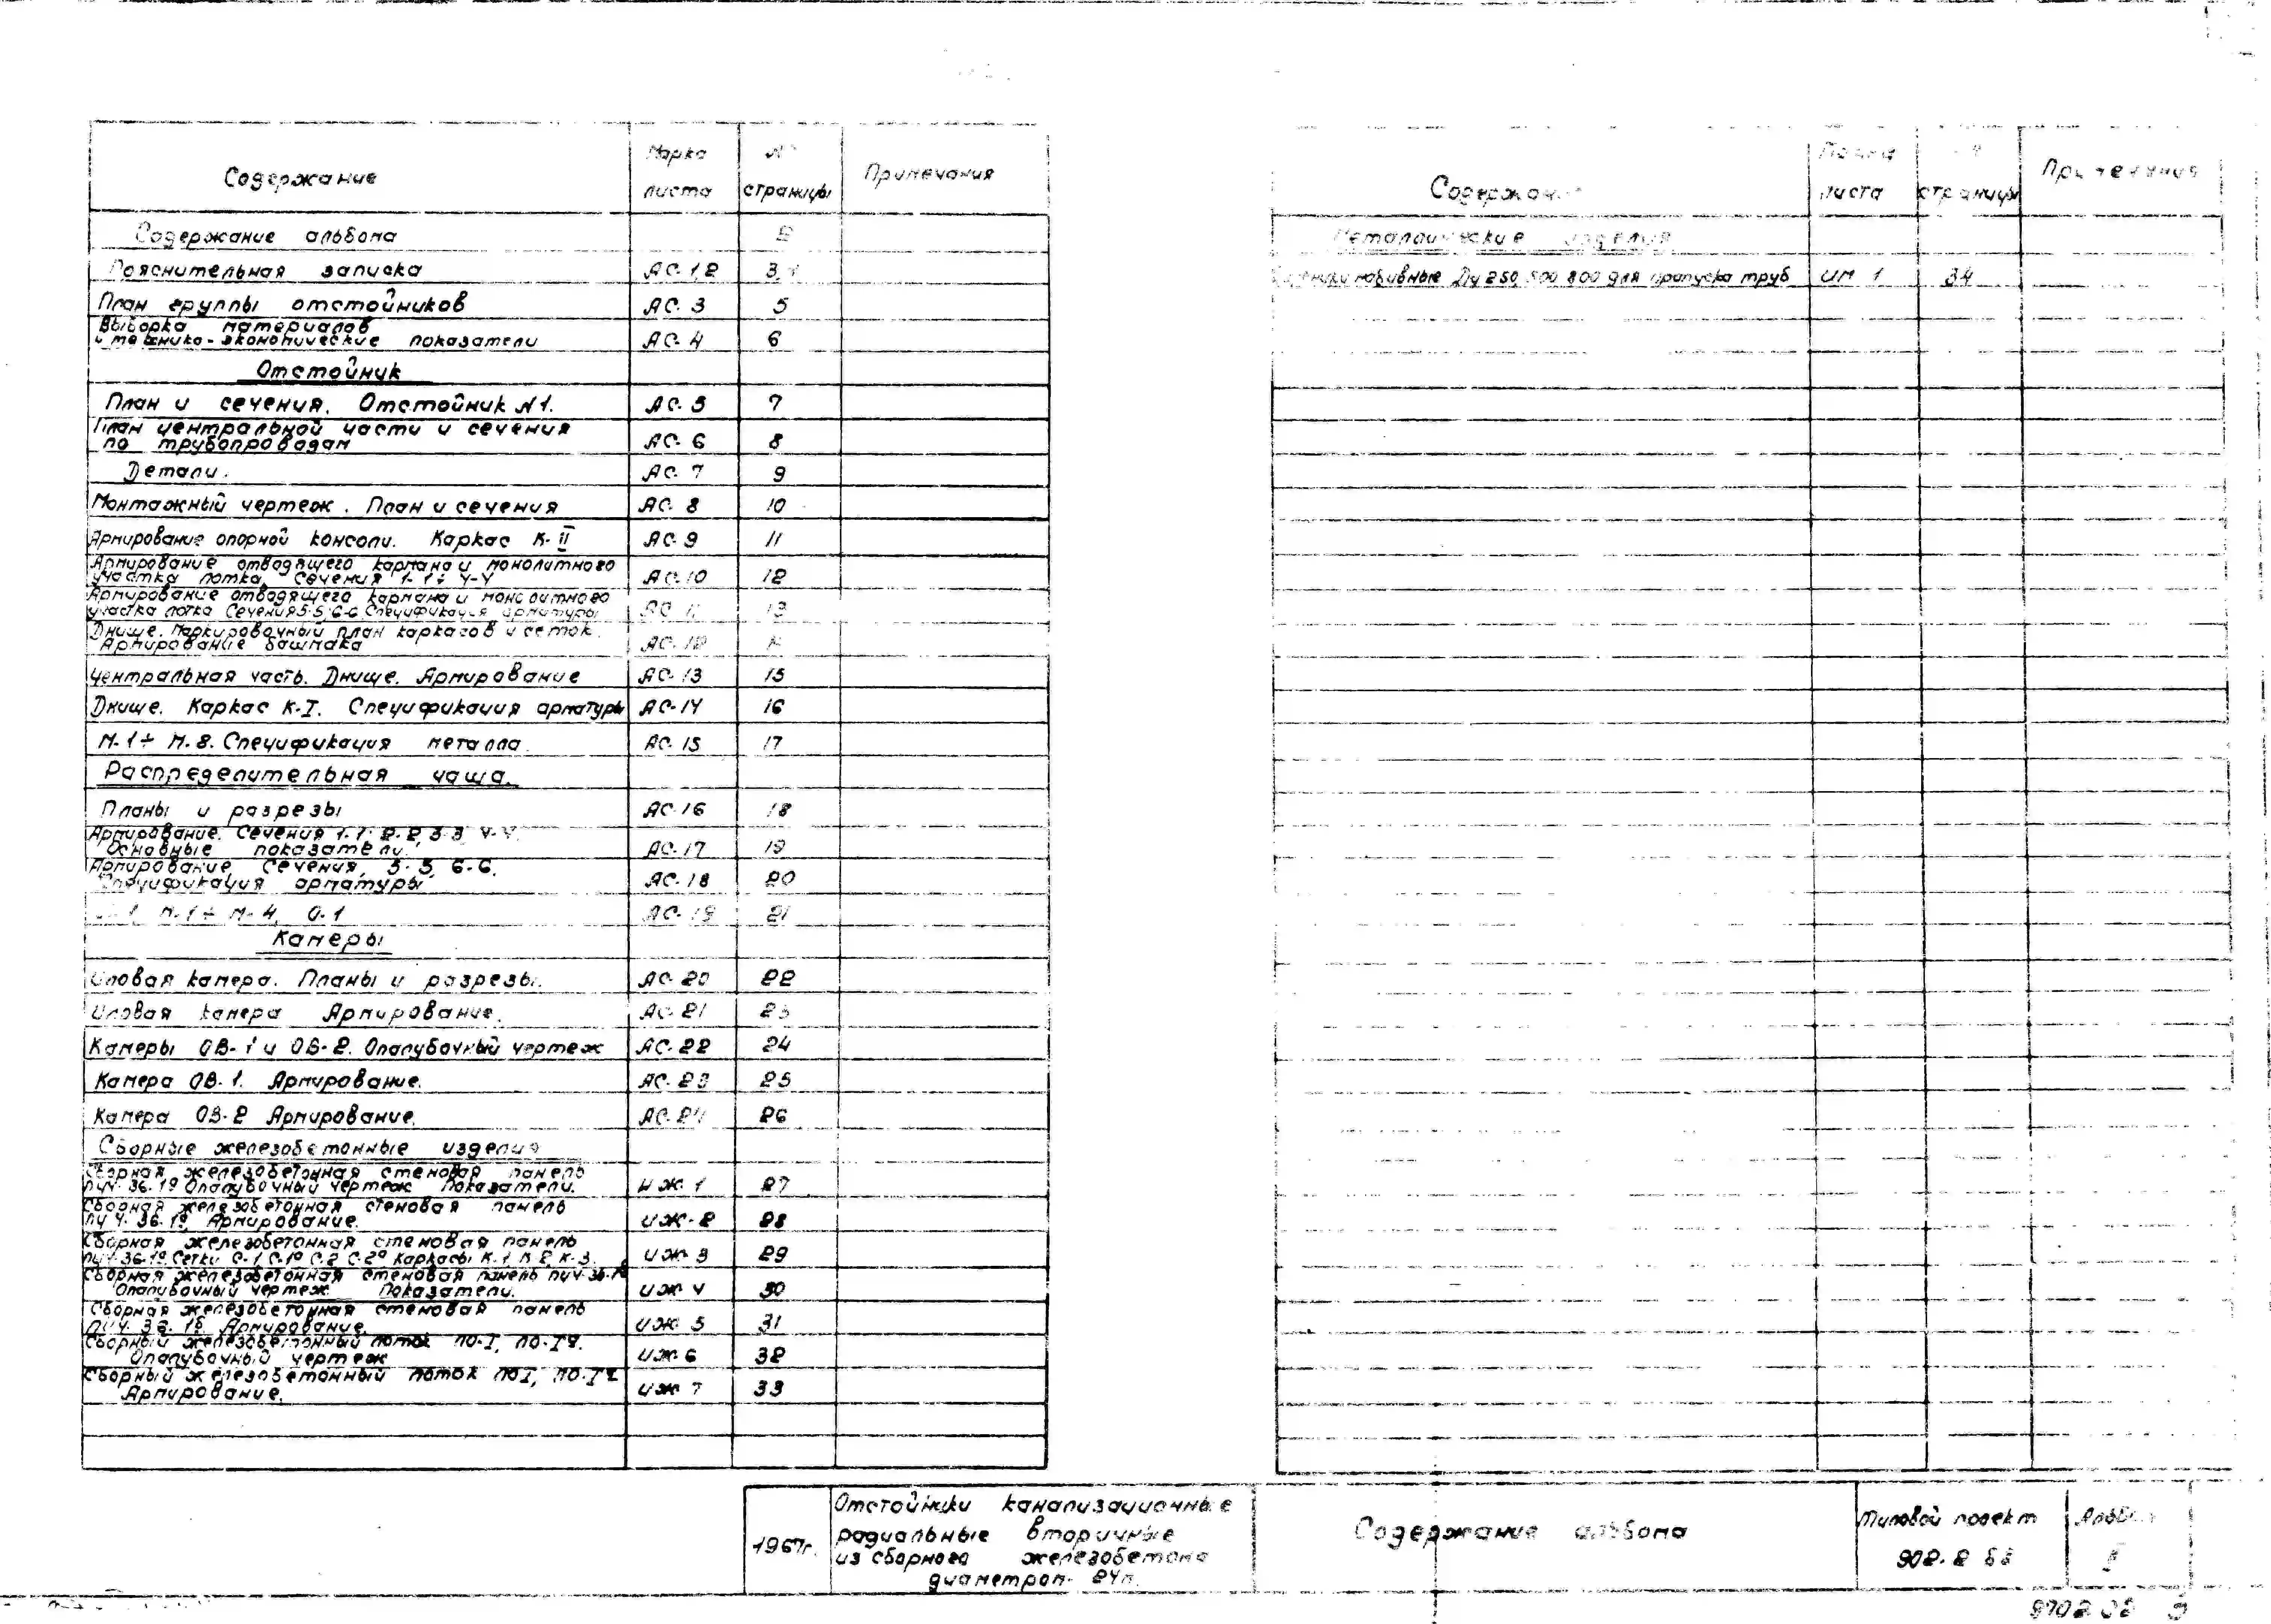 Содержание
Марка листа
страницы
Примечания
Содержание альбома 2
Пояснительная записка АС-1,2 3,4
План группы отстойников АС-3 5
Выборка материалов
и технико-экономические показатели АС-4 6
Отстойник
План и сечения. Отстойник N1. АС-5 7
План центральной части и сечения
по трубопроводам АС-6 8
Детали. АС-7 9
Монтажный чертеж. План и сечения АС-8 10
Армирование опорной консоли. Каркас К-II АС-9 11
Армирование отводящего кармана и монолитного
участка лотка. Сечения 1-1÷4-4 АС-10 12
Армирование отводящего кармана и монолитного
участка лотка Сечения 5-5; 6-6 Спецификация арматуры АС-11 13
Днище. Маркировочный план каркасов и сеток.
Армирование башмака АС-12
Центральная часть. Днище. Армирование АС-13 15
Днище. Каркас К-I. Спецификация арматуры АС-14 16
М-1÷М-8. Спецификация металла. АС-15 17
Распределительная чаша.
Планы и разрезы АС-16 18
Армирование. Сечения 1-1; 2-2, 3-3, 4-4.
Основные показатели. АС-17 19
Армирование. Сечения, 5-5, 6-6.
Спецификация арматуры АС-18 20
М-1÷М-4, О-1 АС-19 21
Камеры
Иловая камера. Планы и разрезы. АС-20 22
Иловая камера Армирование. АС-21 23
Камеры ОВ-1 и ОВ-2. Опалубочный чертеж АС-22 24
Камера ОВ-1. Армирование. АС-23 25
Камера ОВ-2 Армирование. АС-24 26
Сборные железобетонные изделия
Сборная железобетонная стеновая панель
36-19 Опалубочный чертеж Показатели. ИЖ-1 27
Сборная железобетонная стеновая панель
36-19. Армирование. ИЖ-2 28
Сборная железобетонная стеновая панель
Сетки С-1, С-1а С-2 С-2а Каркасы К-1 К-2, К-3 ИЖ-3 29
Сборная железобетонная стеновая панель
Опалубочный чертеж Показатели. ИЖ-4 30
Сборная железобетонная стеновая панель
Армирование. ИЖ-5 31
Сборный железобетонный лоток ЛО-I, ЛО-Iа.
Опалубочный чертеж ИЖ-6 32
Сборный железобетонный лоток ЛО-I, ЛО-Iа
Армирование. ИЖ-7 33
Содержание
листа
страницы
Примечания
Металлические изделия
набивные Ду 250, 500 800 для пропуска труб ИМ 1 34
1967г.
Отстойники канализационные
радиальные вторичные
из сборного железобетона
диаметром 24м.
Содержание альбома
Типовой проект
902-2
Альбом